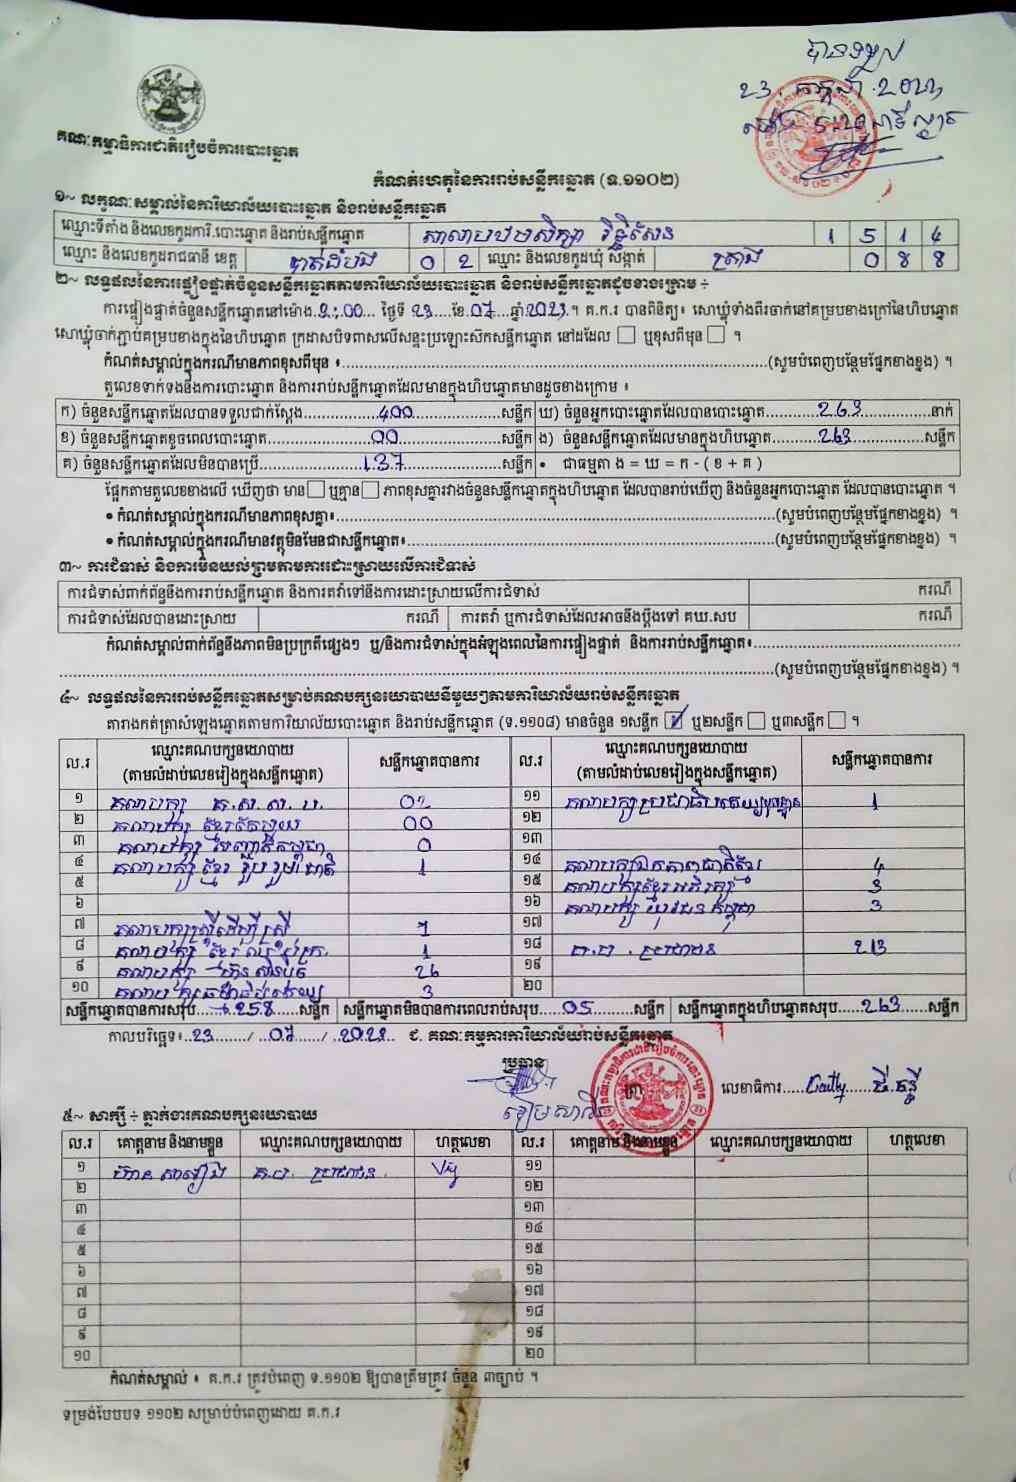 បានទទួល
គណៈកម្មាធិការជាតិរៀបចំការបោះឆ្នោត
កំណត់ហេតុនៃការរាប់សន្លឹកឆ្នោត (ទ.១១០២)
១~ លក្ខណៈសម្គាល់នៃការិយាល័យបោះឆ្នោត និងរាប់សន្លឹកឆ្នោត
ឈ្មោះទីតាំង និងលេខកូដការិ.បោះឆ្នោត និងរាប់សន្លឹកឆ្នោត សាលាបឋមសិក្សា 1 5 1 4
ឈ្មោះ និងលេខកូដរាជធានី ខេត្ត បាត់ដំបង 0 2 ឈ្មោះ និងលេខកូដឃុំ សង្កាត់ 0 8 8
២~ លទ្ធផលនៃការផ្ទៀងផ្ទាត់ចំនួនសន្លឹកឆ្នោតតាមការិយាល័យបោះឆ្នោត និងរាប់សន្លឹកឆ្នោតដូចខាងក្រោម ÷
ការផ្ទៀងផ្ទាត់ចំនួនសន្លឹកឆ្នោតនៅម៉ោង..:00... ថ្ងៃទី 23 ....ខែ.07..... ឆ្នាំ.2023.។ គ.ក.រ បានពិនិត្យ៖ សោឃ្លុំទាំងពីរចាក់នៅគម្របខាងក្រៅនៃហិបឆ្នោត
សោឃ្លុំចាក់ភ្ជាប់គម្របខាងក្នុងនៃហិបឆ្នោត ក្រដាសបិទពាសលើសន្ទះប្រឡោះស៊កសន្លឹកឆ្នោត នៅដដែល ឬខុសពីមុន ។
កំណត់សម្គាល់ក្នុងករណីមានភាពខុសពីមុន ៖.....(សូមបំពេញបន្ថែមផ្នែកខាងខ្នង) ។
តួលេខទាក់ទងនឹងការបោះឆ្នោត និងការរាប់សន្លឹកឆ្នោតដែលមានក្នុងហិបឆ្នោតមានដូចខាងក្រោម ៖
ក) ចំនួនសន្លឹកឆ្នោតដែលបានទទួលជាក់ស្តែង.....400.....សន្លឹក ឃ) ចំនួនអ្នកបោះឆ្នោតដែលបានបោះឆ្នោត.....263.....នាក់
ខ) ចំនួនសន្លឹកឆ្នោតខូចពេលបោះឆ្នោត.....00.....សន្លឹក ង) ចំនួនសន្លឹកឆ្នោតដែលមានក្នុងហិបឆ្នោត.....263.....សន្លឹក
គ) ចំនួនសន្លឹកឆ្នោតដែលមិនបានប្រើ.....137.....សន្លឹក • ជាធម្មតា ង = ឃ = ក - ( ខ + គ )
ផ្អែកតាមតួលេខខាងលើ ឃើញថា មាន ឬគ្មាន ភាពខុសគ្នារវាងចំនួនសន្លឹកឆ្នោតក្នុងហិបឆ្នោត ដែលបានរាប់ឃើញ និងចំនួនអ្នកបោះឆ្នោត ដែលបានបោះឆ្នោត ។
• កំណត់សម្គាល់ក្នុងករណីមានភាពខុសគ្នា៖.....(សូមបំពេញបន្ថែមផ្នែកខាងខ្នង) ។
• កំណត់សម្គាល់ក្នុងករណីមានវត្ថុមិនមែនជាសន្លឹកឆ្នោត៖.....(សូមបំពេញបន្ថែមផ្នែកខាងខ្នង) ។
៣~ ការជំទាស់ និងការមិនយល់ព្រមតាមការដោះស្រាយលើការជំទាស់
ការជំទាស់ពាក់ព័ន្ធនឹងការរាប់សន្លឹកឆ្នោត និងការតវ៉ាទៅនឹងការដោះស្រាយលើការជំទាស់ ករណី
ការជំទាស់ដែលបានដោះស្រាយ ករណី ការតវ៉ា ឬការជំទាស់ដែលអាចនឹងប្តឹងទៅ គឃ.សប ករណី
កំណត់សម្គាល់ពាក់ព័ន្ធនឹងភាពមិនប្រក្រតីផ្សេងៗ ឬ/និងការជំទាស់ក្នុងអំឡុងពេលនៃការផ្ទៀងផ្ទាត់ និងការរាប់សន្លឹកឆ្នោត៖.....
.....(សូមបំពេញបន្ថែមផ្នែកខាងខ្នង) ។
៤~ លទ្ធផលនៃការរាប់សន្លឹកឆ្នោតសម្រាប់គណបក្សនយោបាយនីមួយៗតាមការិយាល័យរាប់សន្លឹកឆ្នោត
តារាងកត់ត្រាសំឡេងឆ្នោតតាមការិយាល័យបោះឆ្នោត និងរាប់សន្លឹកឆ្នោត (ទ.១១០៨) មានចំនួន ១សន្លឹក ឬ២សន្លឹក ឬ៣សន្លឹក ។
ល.រ ឈ្មោះគណបក្សនយោបាយ (តាមលំដាប់លេខរៀងក្នុងសន្លឹកឆ្នោត) សន្លឹកឆ្នោតបានការ ល.រ ឈ្មោះគណបក្សនយោបាយ (តាមលំដាប់លេខរៀងក្នុងសន្លឹកឆ្នោត) សន្លឹកឆ្នោតបានការ
១ គណបក្ស ១១ គណបក្សប្រជាធិបតេយ្យមូលដ្ឋាន 1
២ គណបក្ស ខ្មែរតែមួយ 00 ១២
៣ គណបក្ស 0 ១៣
៤ គណបក្ស ខ្មែរ រួបរួមជាតិ 1 ១៤ គណបក្សឯកភាពជាតិខ្មែរ 4
៥ ១៥ គណបក្សខ្មែរអភិរក្ស 3
៦ ១៦ គណបក្ស យុវជនកម្ពុជា 3
៧ គណបក្សស្ត្រីដើម្បីស្ត្រី ១៧
៨ គណបក្ស ខ្មែរ 1 ១៨ គ.ប. ប្រជាជន 213
៩ គណបក្ស ហ៊្វុនស៊ិនប៉ិច 26 ១៩
១០ គណបក្សធម្មាធិបតេយ្យ 3 ២០
សន្លឹកឆ្នោតបានការសរុប.....258.....សន្លឹក សន្លឹកឆ្នោតមិនបានការពេលរាប់សរុប.....05.....សន្លឹក សន្លឹកឆ្នោតក្នុងហិបឆ្នោតសរុប.....263.....សន្លឹក
កាលបរិច្ឆេទ៖..23......./ ..07...../ ..2023.. ជ. គណៈកម្មការការិយាល័យរាប់សន្លឹកឆ្នោត
ប្រធាន
លេខាធិការ.....
៥~ សាក្សី ÷ ភ្នាក់ងារគណបក្សនយោបាយ
ល.រ គោត្តនាម និងនាមខ្លួន ឈ្មោះគណបក្សនយោបាយ ហត្ថលេខា ល.រ គោត្តនាម និងនាមខ្លួន ឈ្មោះគណបក្សនយោបាយ ហត្ថលេខា
១ គ.ប. ប្រជាជន. ១១
២ ១២
៣ ១៣
៤ ១៤
៥ ១៥
៦ ១៦
៧ ១៧
៨ ១៨
៩ ១៩
១០ ២០
កំណត់សម្គាល់ ៖ គ.ក.រ ត្រូវបំពេញ ទ.១១០២ ឱ្យបានត្រឹមត្រូវ ចំនួន ៣ច្បាប់ ។
ទម្រង់បែបបទ ១១០២ សម្រាប់បំពេញដោយ គ.ក.រ